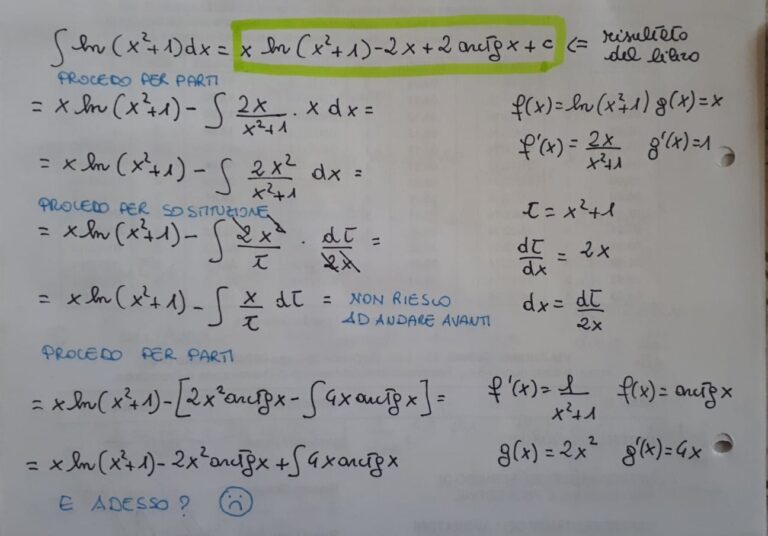 ∫ ln(x²+1)dx = x ln(x²+1)-2x+2 arctg x + c <= risultato del libro
PROCEDO PER PARTI
= x ln(x²+1) - ∫ 2x/(x²+1) · x dx =
f(x)=ln(x²+1) g(x)=x
= x ln(x²+1) - ∫ 2x²/(x²+1) dx =
f'(x)= 2x/(x²+1) g'(x)=1
PROCEDO PER SOSTITUZIONE
t = x²+1
= x ln(x²+1) - ∫ 2x²/t · dt/2x =
dt/dx = 2x
= x ln(x²+1) - ∫ x/t dt = NON RIESCO AD ANDARE AVANTI
dx = dt/2x
PROCEDO PER PARTI
= x ln(x²+1) - [2x² arctg x - ∫ 4x arctg x] =
f'(x)= 1/(x²+1) f(x)= arctg x
= x ln(x²+1) - 2x² arctg x + ∫ 4x arctg x
g(x)= 2x² g'(x)= 4x
E ADESSO?